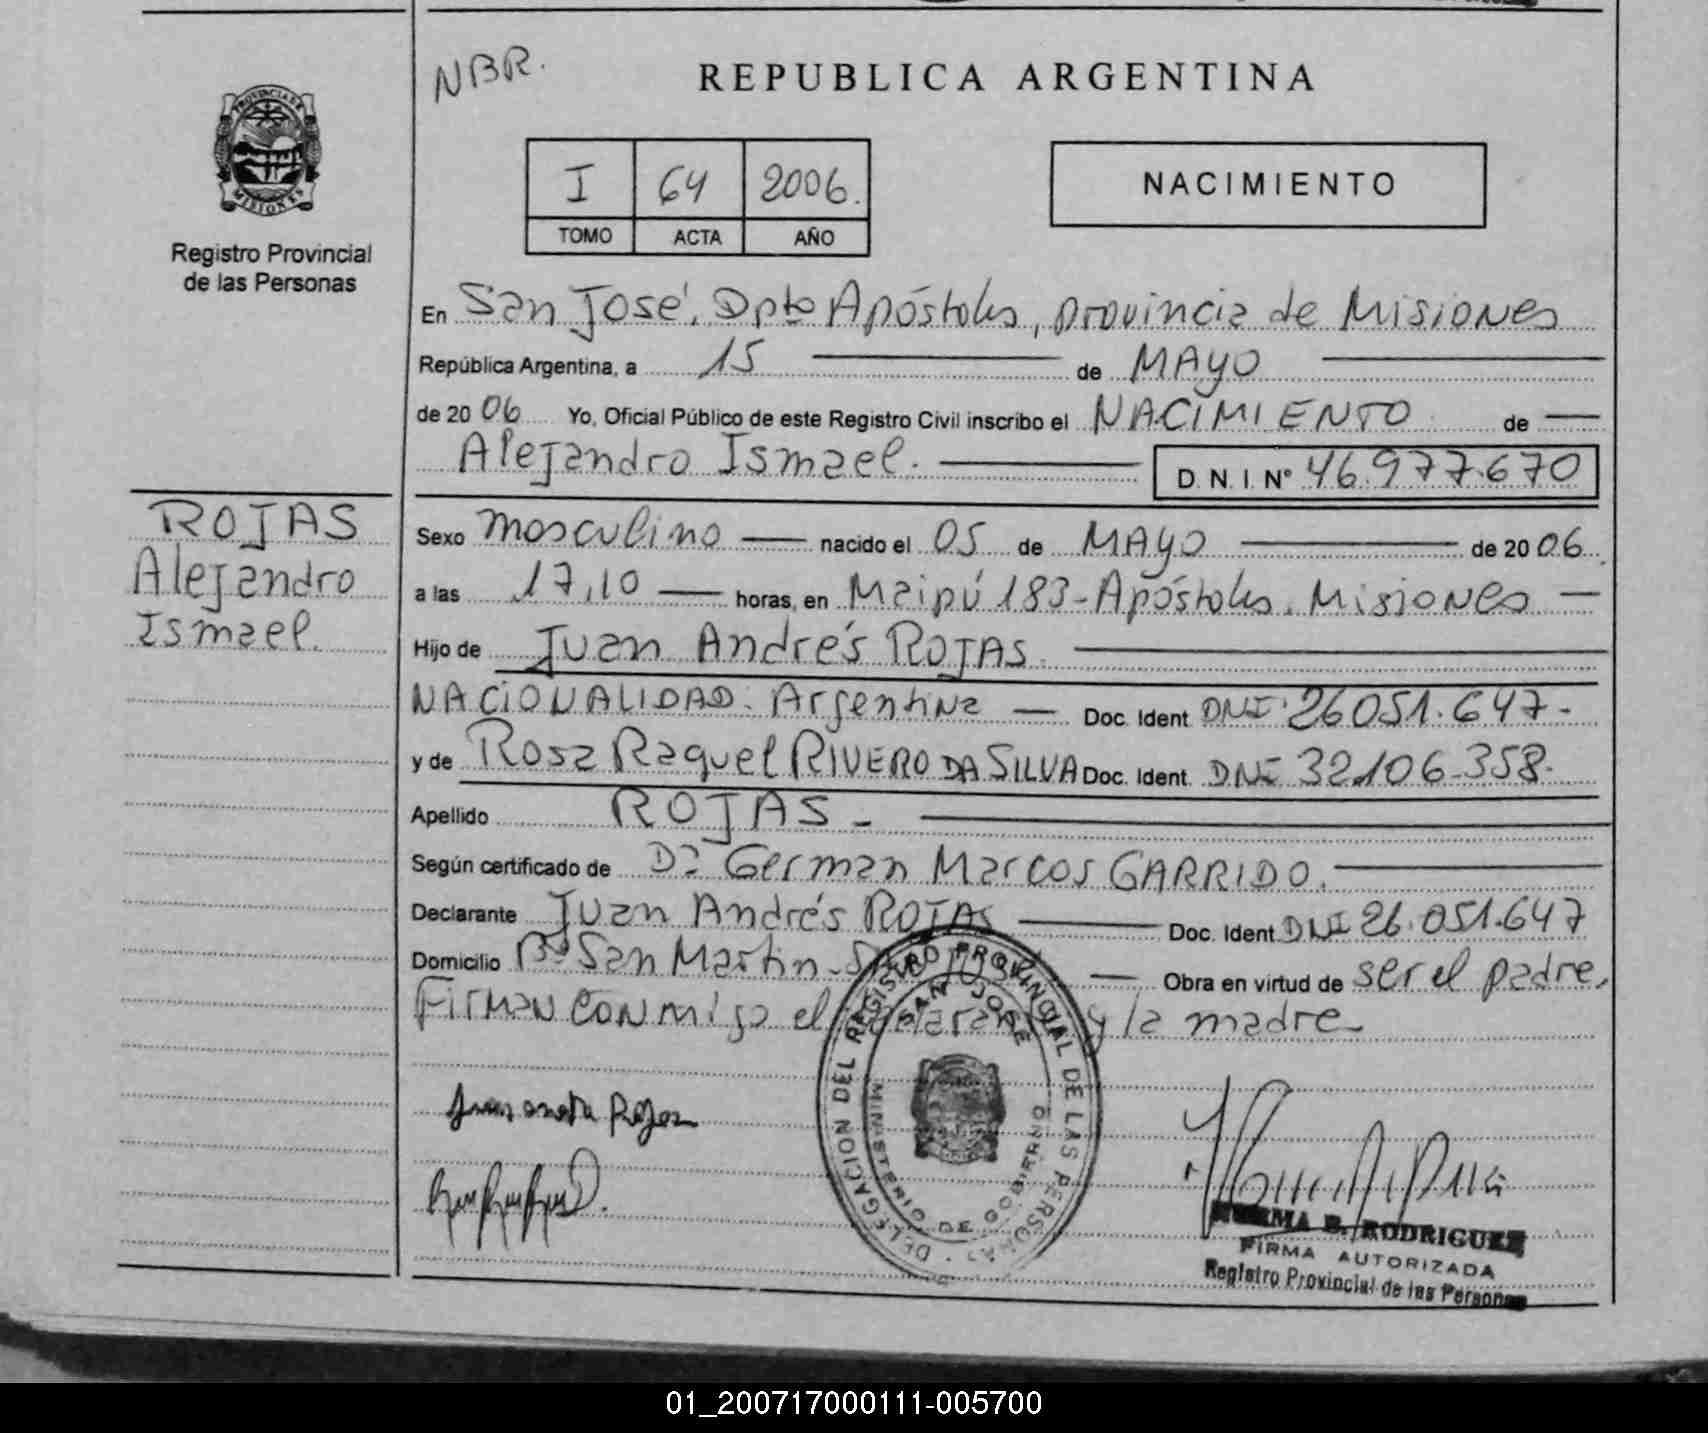 NBR.
REPUBLICA ARGENTINA
PROVINCIA DE
MISIONES
I 64 2006.
TOMO ACTA AÑO
NACIMIENTO
Registro Provincial
de las Personas
En San José, Dpto Apóstoles, provincia de Misiones
República Argentina, a 15 de MAYO
de 2006 Yo, Oficial Público de este Registro Civil inscribo el NACIMIENTO de
Alejandro Ismael.
D.N.I. Nº 46.977.670
ROJAS
Alejandro
Ismael.
Sexo masculino nacido el 05 de MAYO de 2006.
a las 17,10 horas, en Maipú 183-Apóstoles. Misiones
Hijo de Juan Andrés ROJAS.
NACIONALIDAD: Argentina Doc. Ident. DNI 26051.647-
y de Rosa Raquel RIVERO DA SILVA Doc. Ident. DNI 32.106.358.
Apellido ROJAS-
Según certificado de German Marcos GARRIDO.
Declarante Juan Andrés ROJAS Doc. Ident. DNI 26.051.647
Domicilio Bº San Martin- San José Obra en virtud de ser el padre,
Firman conmigo el y la madre
DELEGACION DEL REGISTRO PROVINCIAL DE LAS PERSONAS
SAN JOSE
MINISTERIO DE GOBIERNO
NORMA B. RODRIGUEZ
FIRMA AUTORIZADA
Registro Provincial de las Personas
01_200717000111-005700